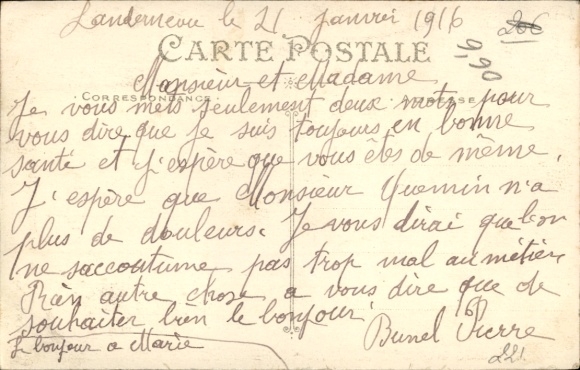 Landerneau le 21 janvier 1916
20€
9,90
CARTE POSTALE
Monsieur et Madame
CORRESPONDANCE
Je vous mets seulement deux mots pour
vous dire que je suis toujours en bonne
santé et j'espère que vous êtes de même.
J'espère que Monsieur Quemin n'a
plus de douleurs. Je vous dirai que l'on
ne saccoutume pas trop mal au métier
Rien autre chose a vous dire que de
souhaiter bien le bonjour
Bunel Pierre
Le bonjour a Marie